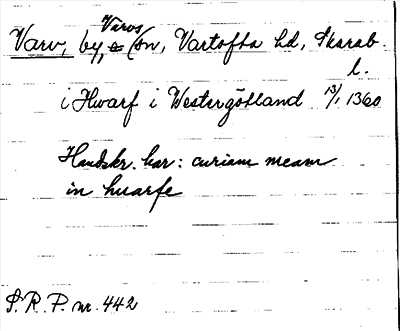 Varvs
Varv, by, (sn, Vartofta hd, Skarab. l.
i Hwarf i Westergötland 13/1 1360
Handskr. har: curiam meam
in huarfe
S.R.P. nr. 442